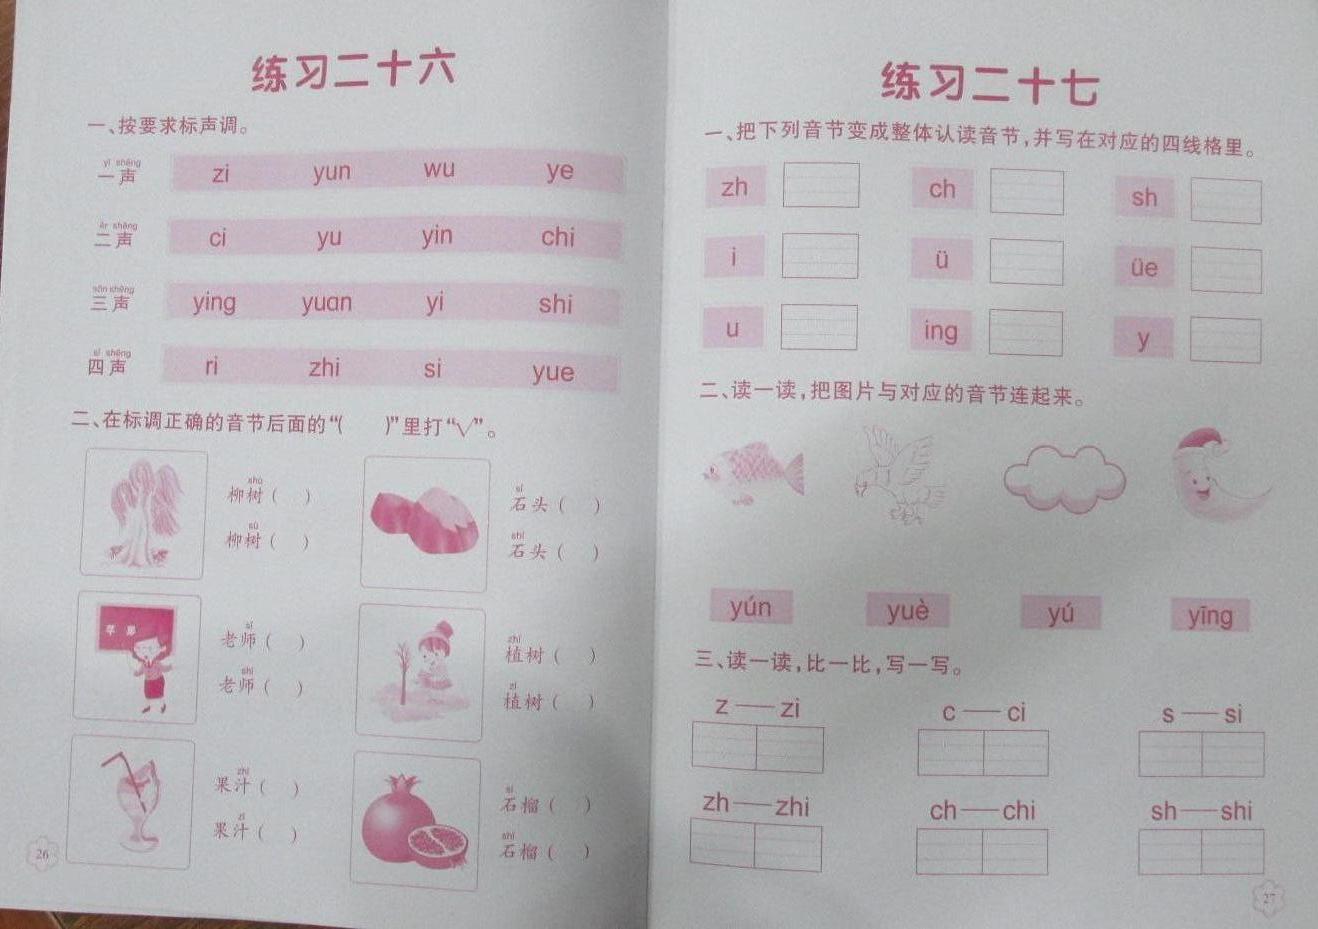 练习二十六
一、按要求标声调。
yī shēng
一声 zi yun wu ye
èr shēng
二声 ci yu yin chi
sān shēng
三声 ying yuan yi shi
sì shēng
四声 ri zhi si yue
二、在标调正确的音节后面的“( )”里打“√”。
shù
柳树( )
sù
柳树( )
sí
石头( )
shí
石头( )
苹果
sī
老师( )
shī
老师( )
zhí
植树( )
zí
植树( )
zhī
果汁( )
zī
果汁( )
sí
石榴( )
shí
石榴( )
26
练习二十七
一、把下列音节变成整体认读音节,并写在对应的四线格里。
zh ch sh
i ü üe
u ing y
二、读一读,把图片与对应的音节连起来。
yún yuè yú yīng
三、读一读,比一比,写一写。
z—zi c—ci s—si
zh—zhi ch—chi sh—shi
27